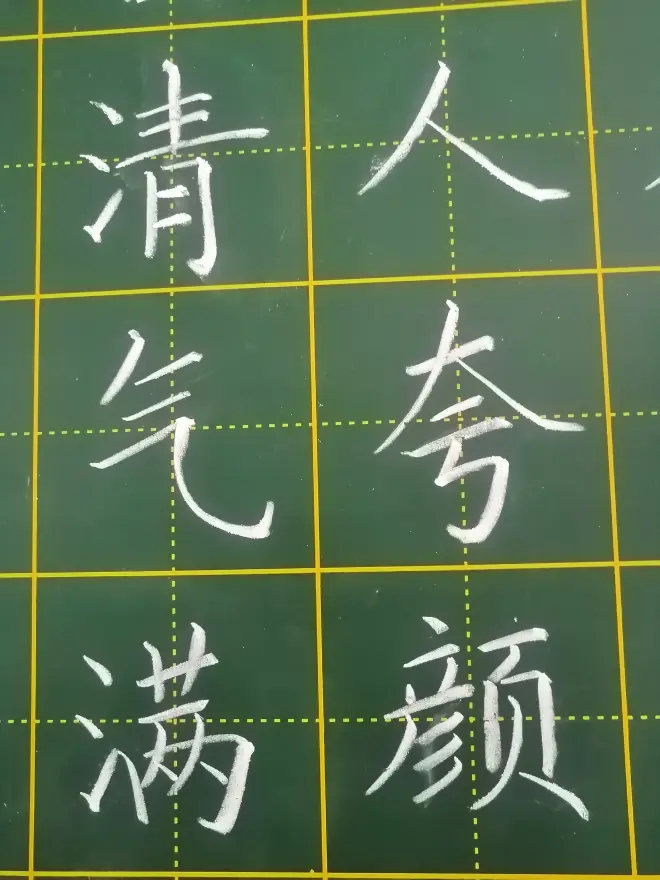 人夸颜
清气满